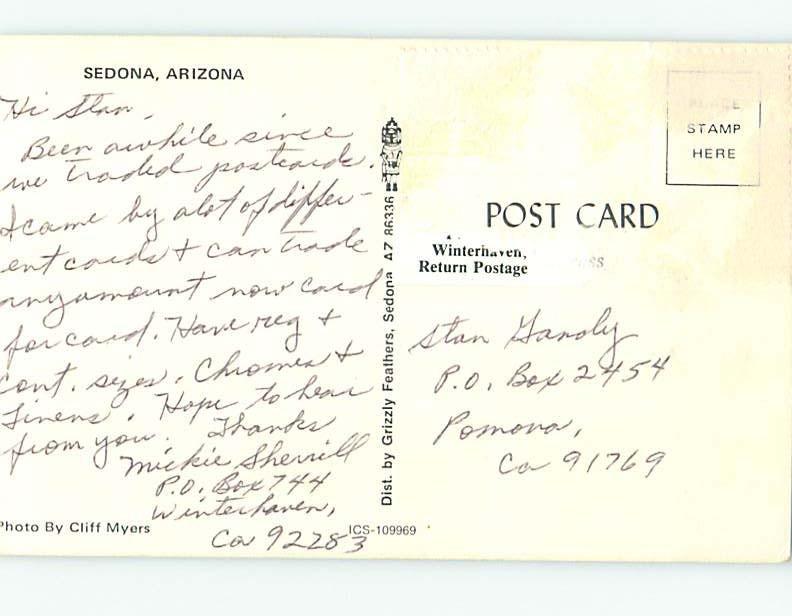 SEDONA, ARIZONA
Hi Stan,
Been awhile since
we traded postcards.
I came by alot of differ-
ent cards + can trade
any amount now card
for card. Have reg +
cont. sizes. Chromes +
Linens. Hope to hear
from you. Thanks
Mickie Sherrill
P.O. Box 744
Winterhaven,
Ca 92283
Photo By Cliff Myers
ICS-109969
Dist. by Grizzly Feathers, Sedona AZ 86336
PLACE
STAMP
HERE
POST CARD
Winterhaven,
Return Postage
Stan
P.O. Box 2454
Pomona,
Ca 91769